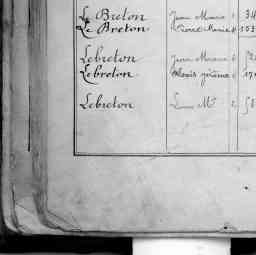 Le Breton Jean Marie 34
Le Breton Pierre Marie 103
Lebreton Jean Marie
Lebreton Alexis Jérôme
Lebreton Louis M.